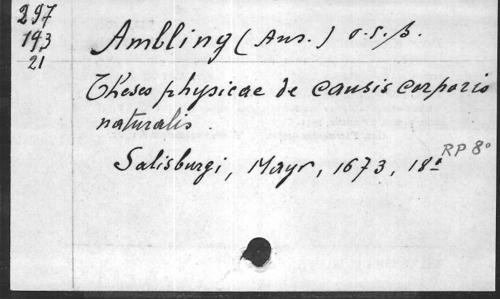 297
193
21
Ambling (Ans.) o.s.B.
Theses physicae de causis corporis
naturalis.
Salisburgi, Mayr, 1673, 18º
RP 8º